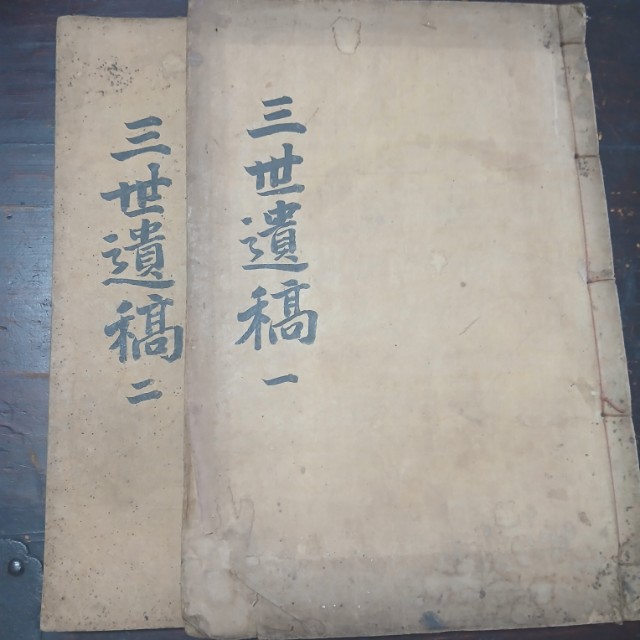 三世遺稿 一
三世遺稿 二